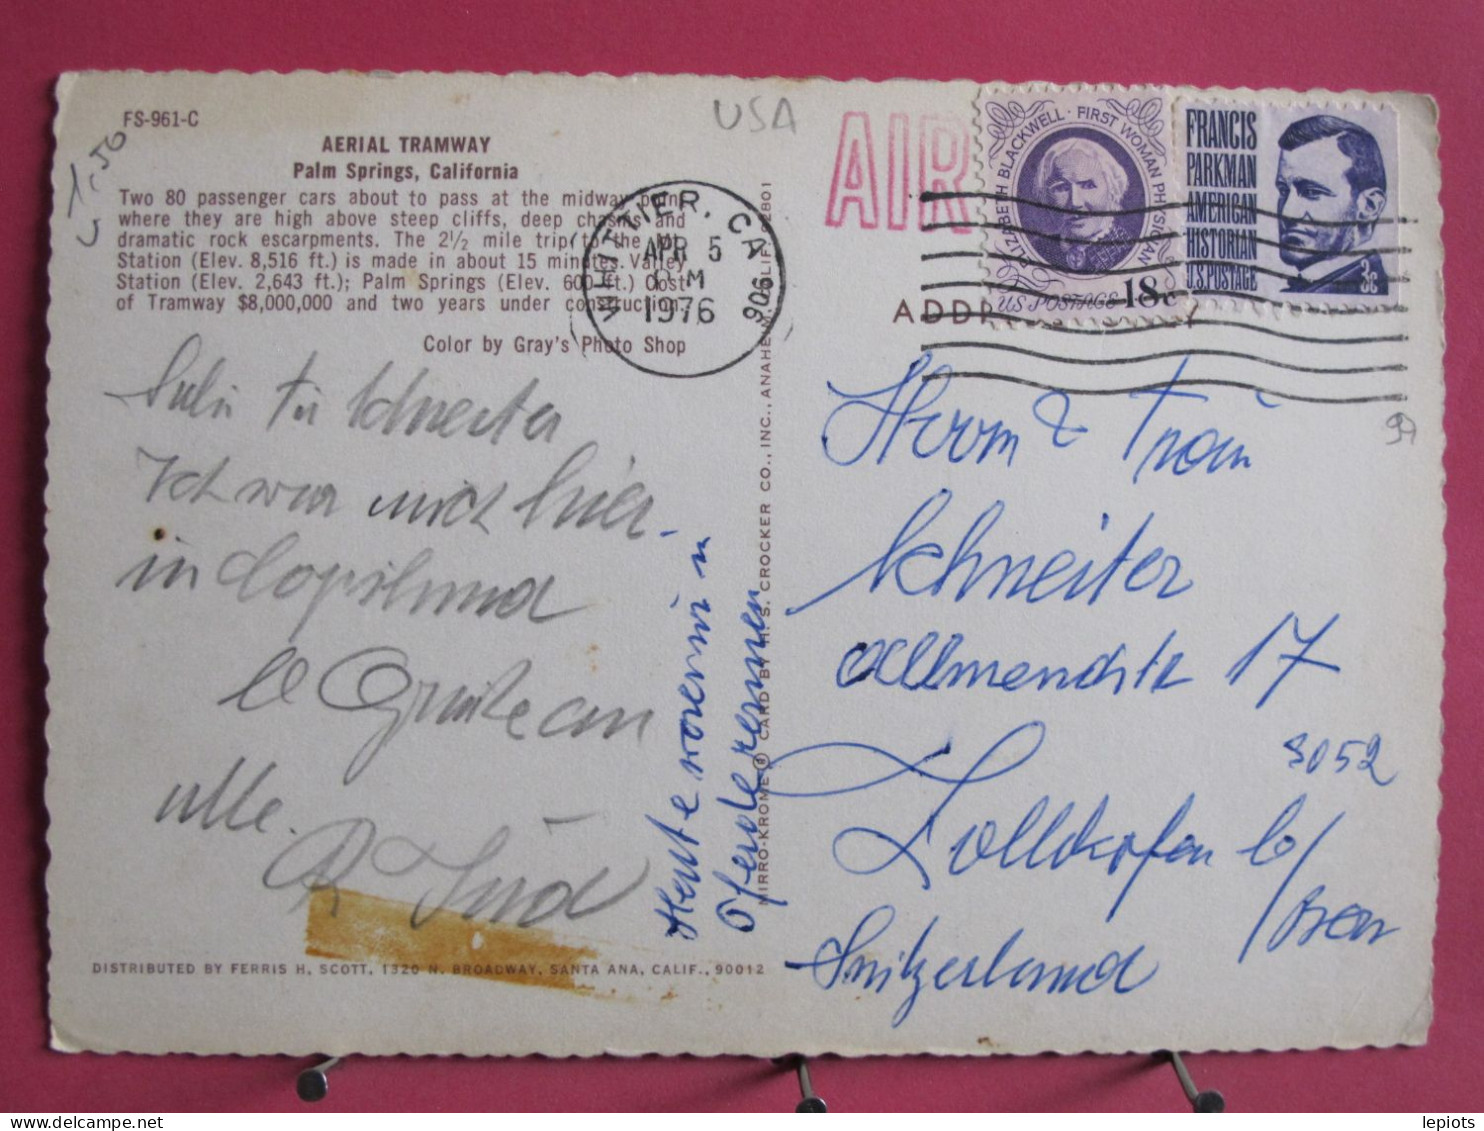 FS-961-C
AERIAL TRAMWAY
Palm Springs, California
Two 80 passenger cars about to pass at the midway point
where they are high above steep cliffs, deep chasms and
dramatic rock escarpments. The 2½ mile trip to the Mt.
Station (Elev. 8,516 ft.) is made in about 15 minutes. Valley
Station (Elev. 2,643 ft.); Palm Springs (Elev. 600 ft.) Cost
of Tramway $8,000,000 and two years under construction.
Color by Gray's Photo Shop
1,50
USA
WHITTIER, CA 906
APR 5
PM
1976
AIR
ELIZABETH BLACKWELL · FIRST WOMAN PHYSICIAN
U.S. POSTAGE 18c
FRANCIS
PARKMAN
AMERICAN
HISTORIAN
U.S. POSTAGE
3c
ADDR
Schneiter
Ich war auch hier
in
Grüsse an
alle.
R
Heute waren wir
Pferderennen
MIRRO-KROME ® CARD BY H. S. CROCKER CO., INC., ANAHEIM, CALIF. 92801
Herrn & Frau
Schneiter
Allmendstr 17
3052
Zollikofen b/
Bern
Switzerland
DISTRIBUTED BY FERRIS H. SCOTT, 1320 N. BROADWAY, SANTA ANA, CALIF., 90012